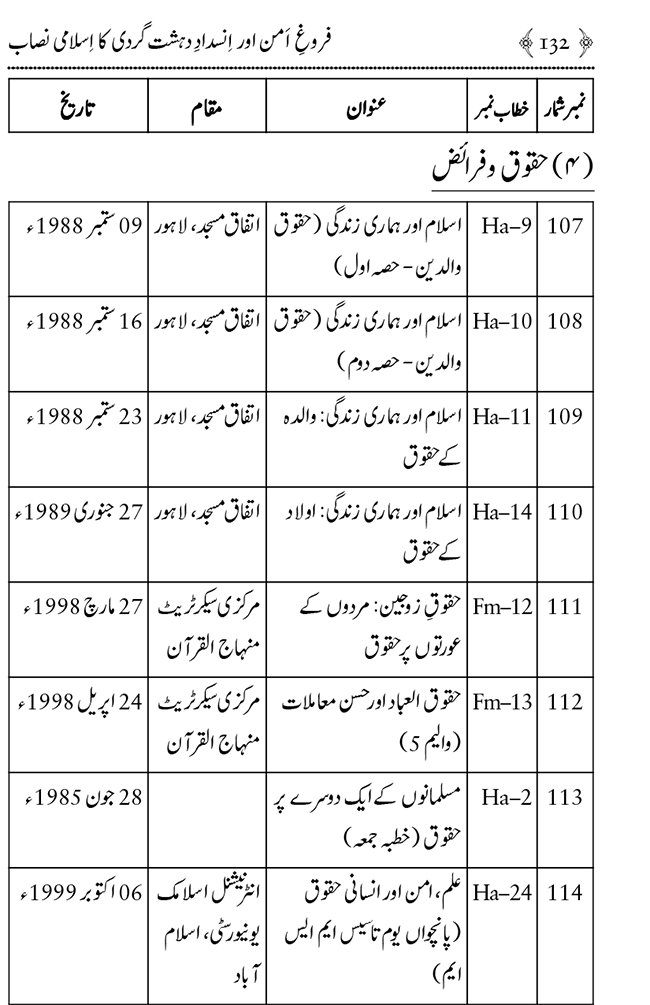 ﴿ 132 ﴾ فروغِ اَمن اور اِنسدادِ دہشت گردی کا اِسلامی نصاب
نمبر شمار خطاب نمبر عنوان مقام تاریخ
(۴) حقوق وفرائض
107 Ha–9 اسلام اور ہماری زندگی (حقوق اتفاق مسجد، لاہور 09 ستمبر 1988ء
والدین - حصہ اول)
108 Ha–10 اسلام اور ہماری زندگی (حقوق اتفاق مسجد، لاہور 16 ستمبر 1988ء
والدین - حصہ دوم)
109 Ha–11 اسلام اور ہماری زندگی: والدہ اتفاق مسجد، لاہور 23 ستمبر 1988ء
کے حقوق
110 Ha–14 اسلام اور ہماری زندگی: اولاد اتفاق مسجد، لاہور 27 جنوری 1989ء
کے حقوق
111 Fm–12 حقوقِ زوجین: مردوں کے مرکزی سیکرٹریٹ 27 مارچ 1998ء
عورتوں پر حقوق منہاج القرآن
112 Fm–13 حقوق العباد اور حسن معاملات مرکزی سیکرٹریٹ 24 اپریل 1998ء
(والیم 5) منہاج القرآن
113 Ha–2 مسلمانوں کے ایک دوسرے پر 28 جون 1985ء
حقوق (خطبہ جمعہ)
114 Ha–24 علم، امن اور انسانی حقوق انٹرنیشنل اسلامک 06 اکتوبر 1999ء
(پانچواں یوم تاسیس ایم ایس یونیورسٹی، اسلام
ایم) آباد